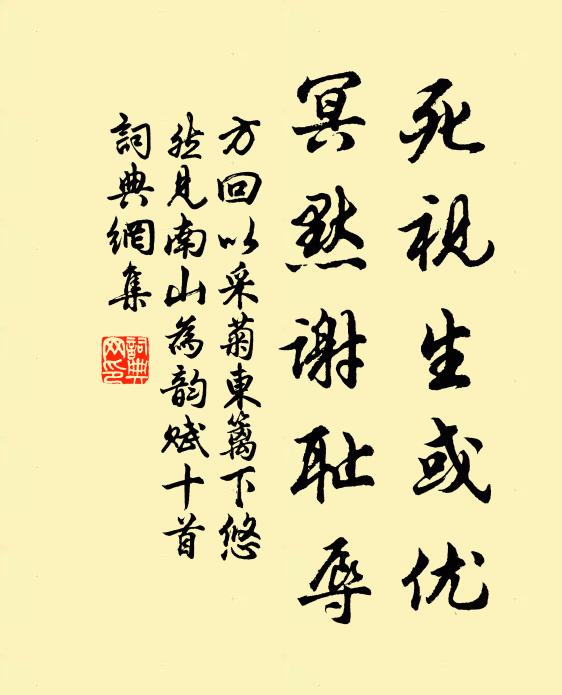 死视生或优
冥默谢耻辱
方回以采菊東篱下悠
然见南山為韵赋十首
詞典網集
詞典
网印